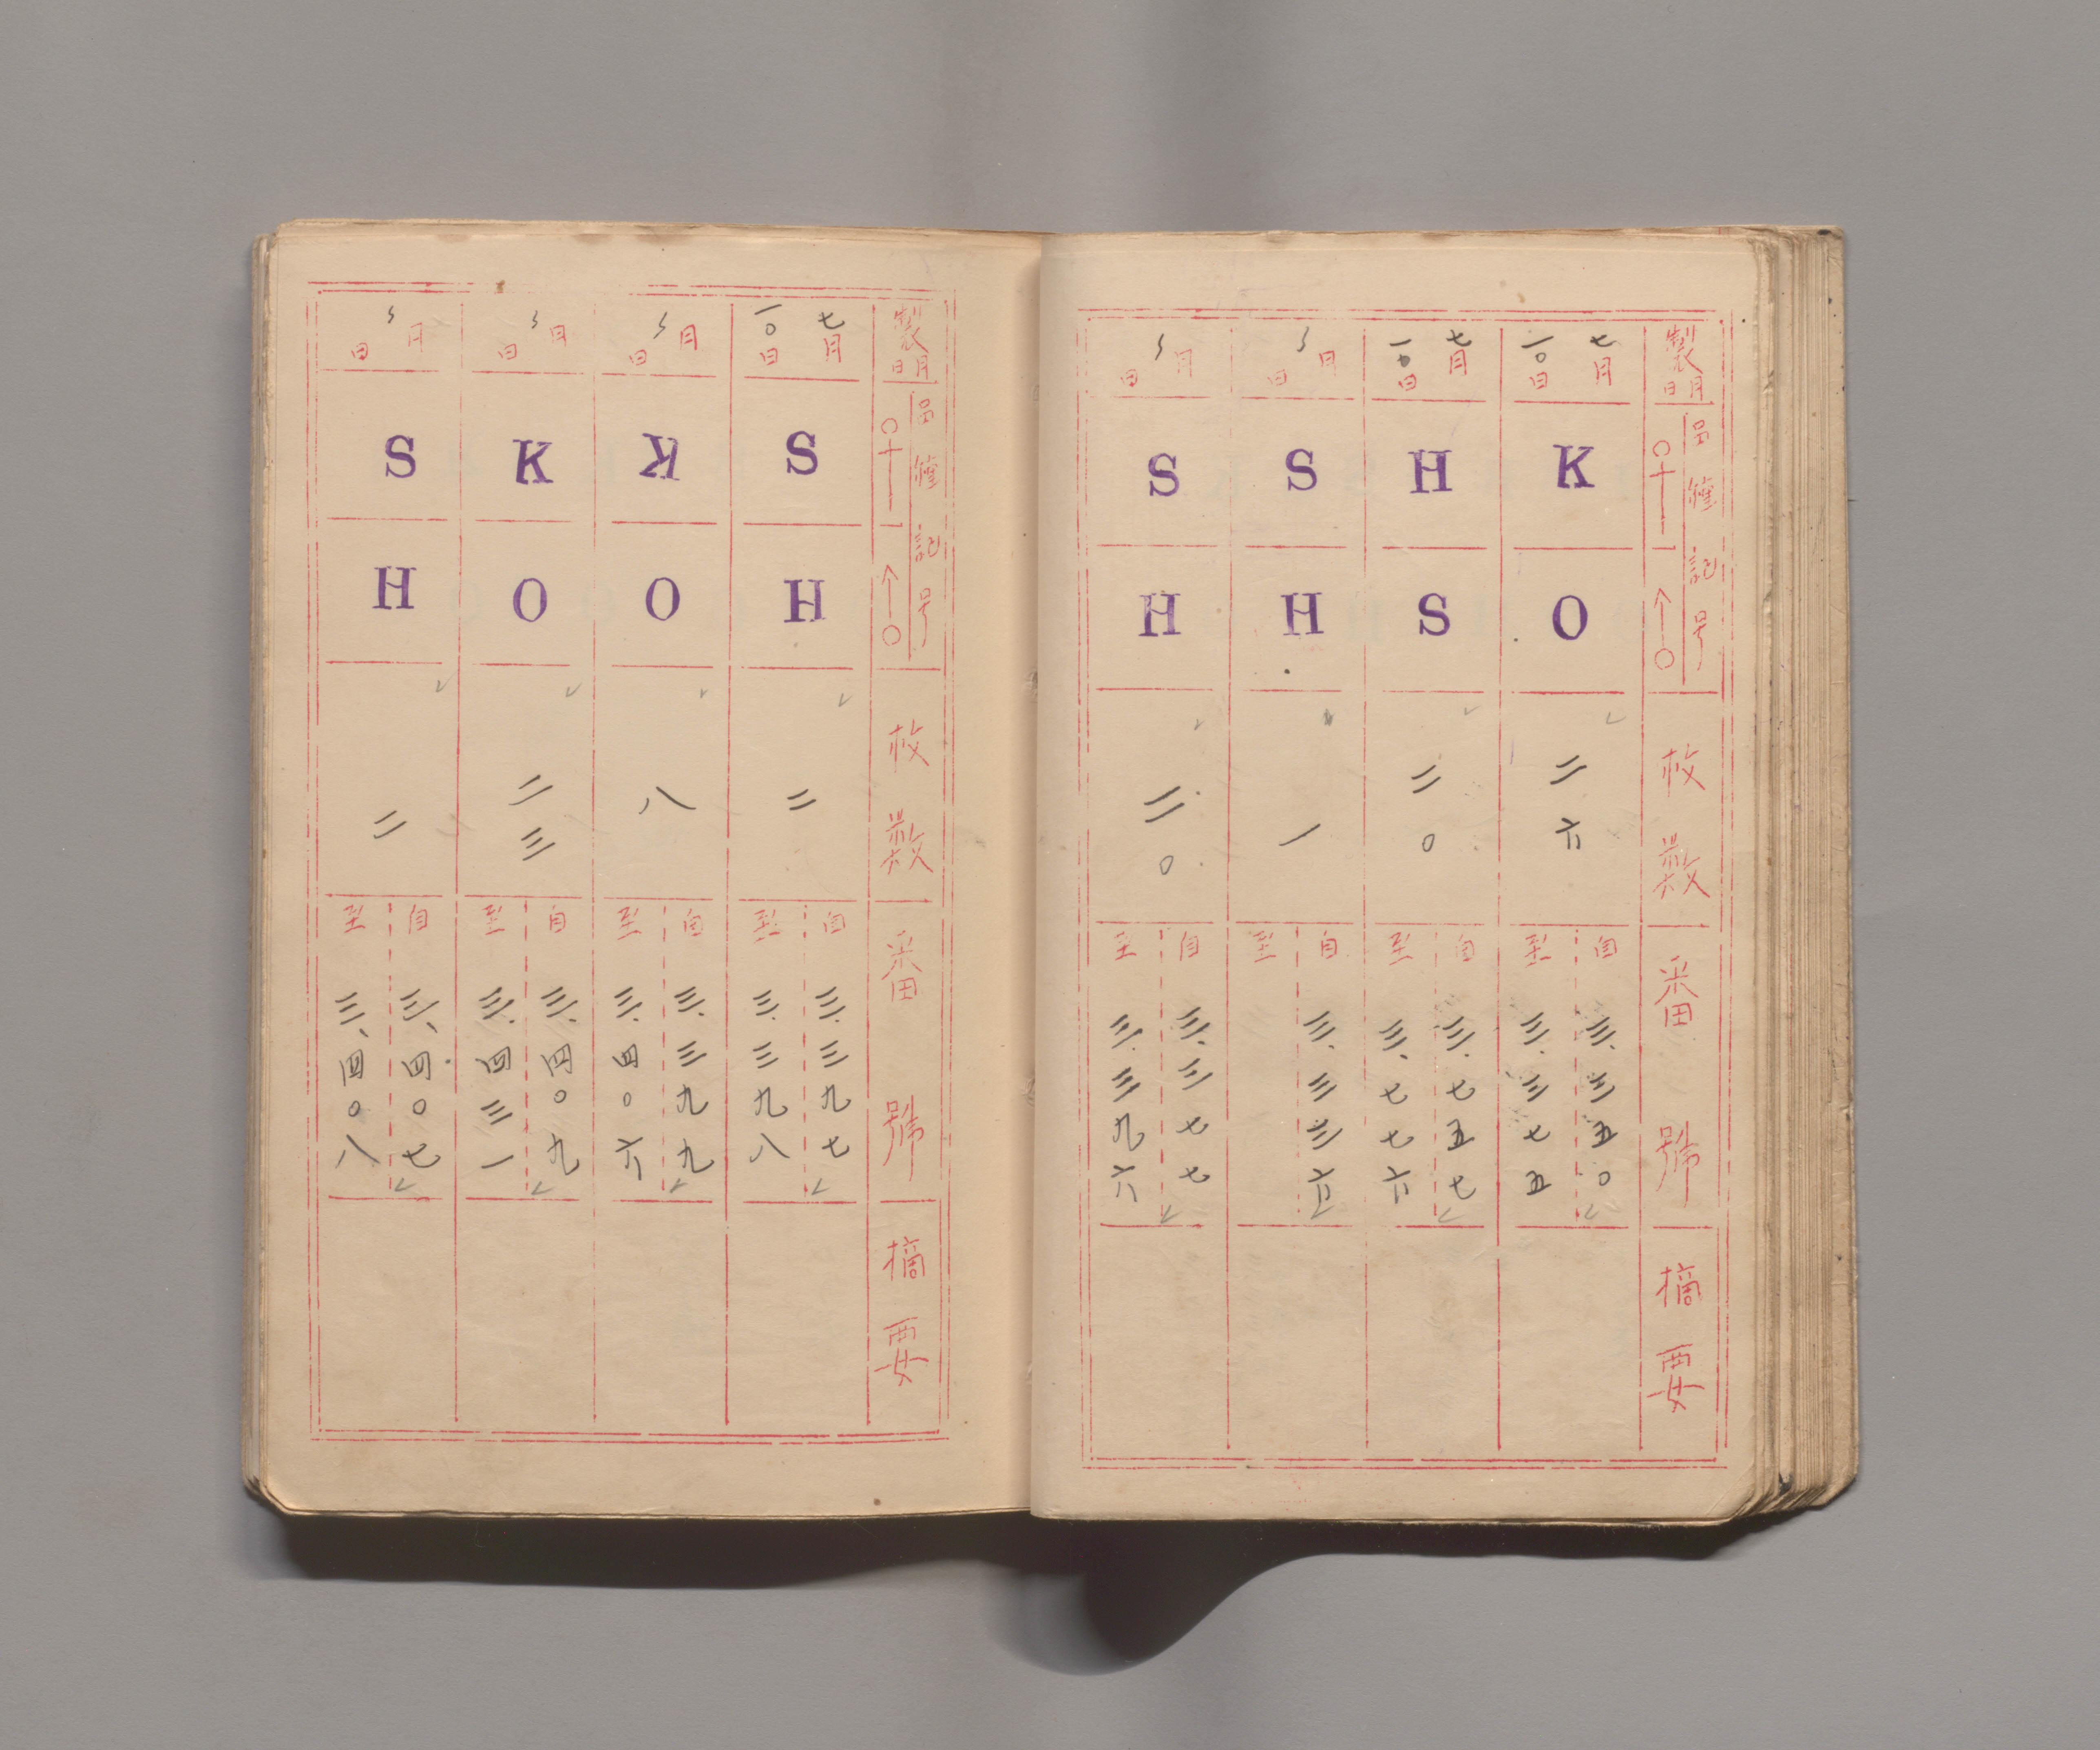 製月日
品種記号
♀
♂
枚數
番號
摘要
七月一〇日
K
O
二六
自三、三五〇
至三、三七五
七月一〇日
H
S
二〇
自三、七五七
至三、七七六
〃月日
S
H
一
自三、三三六
至
〃月日
S
H
二〇
自三、三七七
至三、三九六
製月日
品種記号
♀
♂
枚數
番號
摘要
七月一〇日
S
H
二
自三、三九七
至三、三九八
〃月日
K
O
八
自三、三九九
至三、四〇六
〃月日
K
O
二三
自三、四〇九
至三、四三一
〃月日
S
H
二
自三、四〇七
至三、四〇八